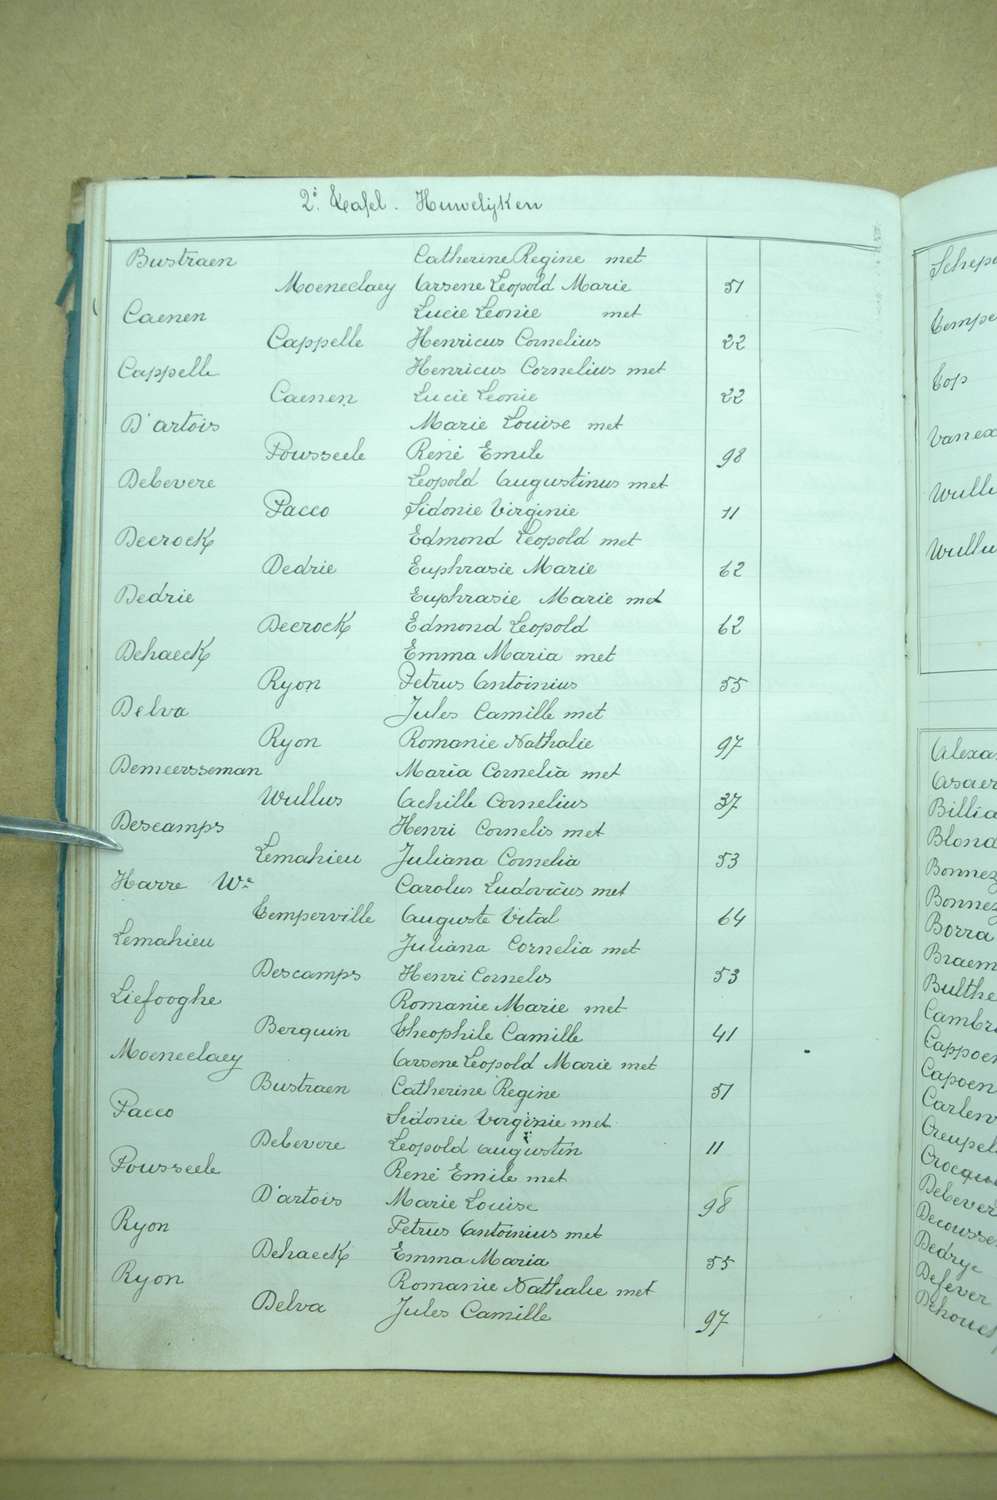 2e Tafel. Huwelijken
Bustraen Catherine Regine met
Moeneclaey Arsene Leopold Marie 51
Caenen Lucie Leonie met
Cappelle Henricus Cornelius 22
Cappelle Henricus Cornelius met
Caenen Lucie Leonie 22
D'artois Marie Louise met
Pousseele René Emile 98
Debevere Leopold Augustinus met
Pacco Sidonie Virginie 11
Decrock Edmond Leopold met
Dedrie Euphrasie Marie 62
Dedrie Euphrasie Marie met
Decrock Edmond Leopold 62
Dehaeck Emma Maria met
Ryon Petrus Antoinius 55
Delva Jules Camille met
Ryon Romanie Nathalie 97
Demeersseman Maria Cornelia met
Wullus Achille Cornelius 37
Descamps Henri Cornelis met
Lemahieu Juliana Cornelia 53
Harre We Carolus Ludovicus met
Temperville Auguste Vital 64
Lemahieu Juliana Cornelia met
Descamps Henri Cornelis 53
Liefooghe Romanie Marie met
Berquin Theophile Camille 41
Moeneclaey Arsene Leopold Marie met
Bustraen Catherine Regine 51
Pacco Sidonie Virginie met
Debevere Leopold Augustin 11
Pousseele René Emile met
D'artois Marie Louise 98
Ryon Petrus Antoinius met
Dehaeck Emma Maria 55
Ryon Romanie Nathalie met
Delva Jules Camille 97
Schepe
Tempe
Top
Vanex
Wulle
Wullu
Alexa
Asaer
Billia
Blond
Bonnez
Bonnez
Borra
Braem
Bulthe
Cambr
Cappoen
Capoen
Carlen
Creupel
Crocq
Debever
Decousse
Dedrye
Defever
Dehouck